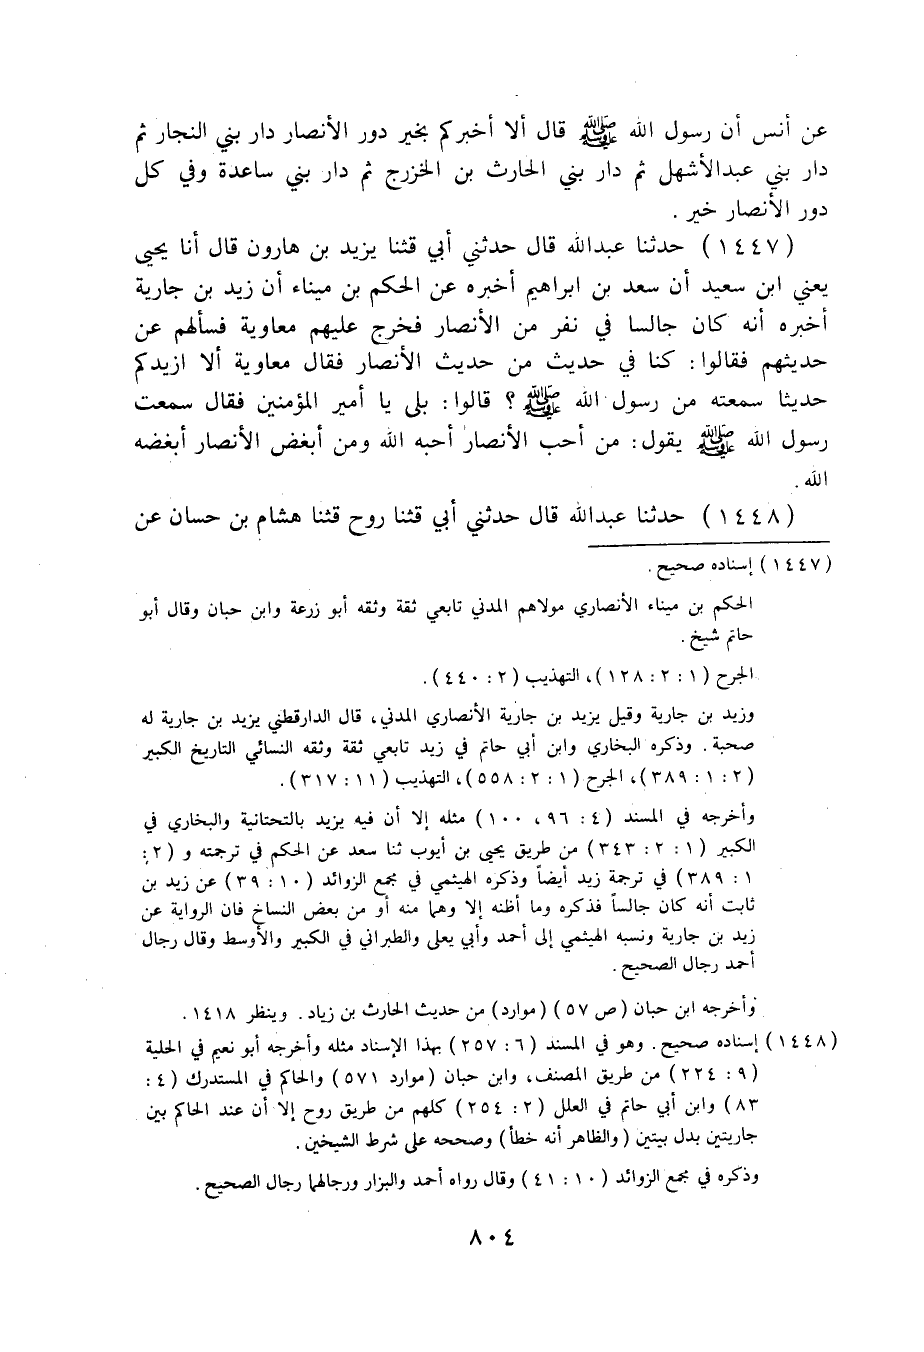 عن أنس أن رسول الله ﷺ قال ألا أخبركم بخير دور الأنصار دار بني النجار ثم
دار بني عبدالأشهل ثم دار بني الحارث بن الخزرج ثم دار بني ساعدة وفي كل
دور الأنصار خير .
(١٤٤٧) حدثنا عبدالله قال حدثني أبي قثنا يزيد بن هارون قال أنا يحيى
يعني ابن سعيد أن سعد بن ابراهيم أخبره عن الحكم بن ميناء أن زيد بن جارية
أخبره أنه كان جالسا في نفر من الأنصار فخرج عليهم معاوية فسألهم عن
حديثهم فقالوا: كنا في حديث من حديث الأنصار فقال معاوية ألا ازيدكم
حديثا سمعته من رسول الله ﷺ ؟ قالوا: بلى يا أمير المؤمنين فقال سمعت
رسول الله ﷺ يقول: من أحب الأنصار أحبه الله ومن أبغض الأنصار أبغضه
الله .
(١٤٤٨) حدثنا عبدالله قال حدثني أبي قثنا روح قثنا هشام بن حسان عن
(١٤٤٧) إسناده صحيح .
الحكم بن ميناء الأنصاري مولاهم المدني تابعي ثقة وثقه أبو زرعة وابن حبان وقال أبو
حاتم شيخ .
الجرح (١ : ٢ : ١٢٨)، التهذيب (٢ : ٤٤٠) .
وزيد بن جارية وقيل يزيد بن جارية الأنصاري المدني، قال الدارقطني يزيد بن جارية له
صحبة . وذكره البخاري وابن أبي حاتم في زيد تابعي ثقة وثقه النسائي التاريخ الكبير
(٢ : ١ : ٣٨٩)، الجرح (١ : ٢ : ٥٥٨)، التهذيب (١١ : ٣١٧) .
وأخرجه في المسند (٤ : ٩٦، ١٠٠) مثله إلا أن فيه يزيد بالتحتانية والبخاري في
الكبير (١ : ٢ : ٣٤٣) من طريق يحيى بن أيوب ثنا سعد عن الحكم في ترجمته و (٢ :
١ : ٣٨٩) في ترجمة زيد أيضاً وذكره الهيثمي في مجمع الزوائد (١٠ : ٣٩) عن زيد بن
ثابت أنه كان جالساً فذكره وما أظنه إلا وهما منه أو من بعض النساخ فان الرواية عن
زيد بن جارية ونسبه الهيثمي إلى أحمد وأبي يعلى والطبراني في الكبير والأوسط وقال رجال
أحمد رجال الصحيح .
وأخرجه ابن حبان (ص ٥٧) (موارد) من حديث الحارث بن زياد . وينظر ١٤١٨ .
(١٤٤٨) إسناده صحيح . وهو في المسند (٦ : ٢٥٧) بهذا الإسناد مثله وأخرجه أبو نعيم في الحلية
(٩ : ٢٢٤) من طريق المصنف، وابن حبان (موارد ٥٧١) والحاكم في المستدرك (٤ :
٨٣) وابن أبي حاتم في العلل (٢ : ٢٥٤) كلهم من طريق روح إلا أن عند الحاكم بين
جاريتين بدل بيتين (والظاهر أنه خطأ) وصححه على شرط الشيخين .
وذكره في مجمع الزوائد (١٠ : ٤١) وقال رواه أحمد والبزار ورجالهما رجال الصحيح .
٨٠٤